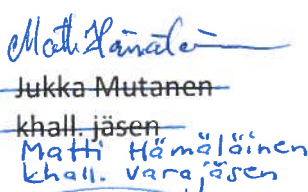 Matti Hämäläinen
Jukka Mutanen
khall. jäsen
Matti Hämäläinen
khall. varajäsen